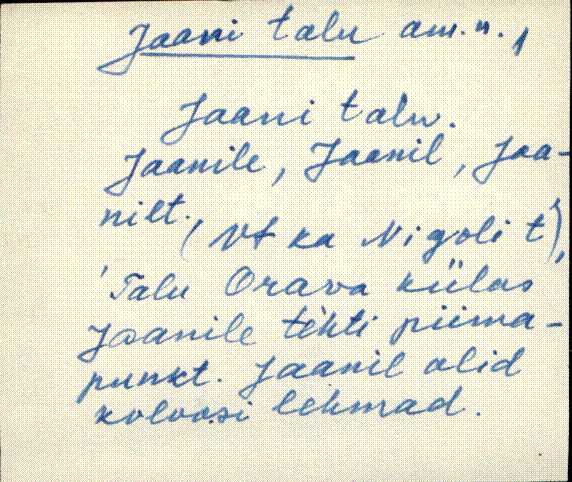 Jaani talu am. n.,
Jaani talu.
Jaanile, Jaanil, Jaa-
nilt. (Vt ka Nigoli t),
'Talu Orava külas
Jaanile tehti piima-
punkt. Jaanil olid
kolvoosi lehmad.